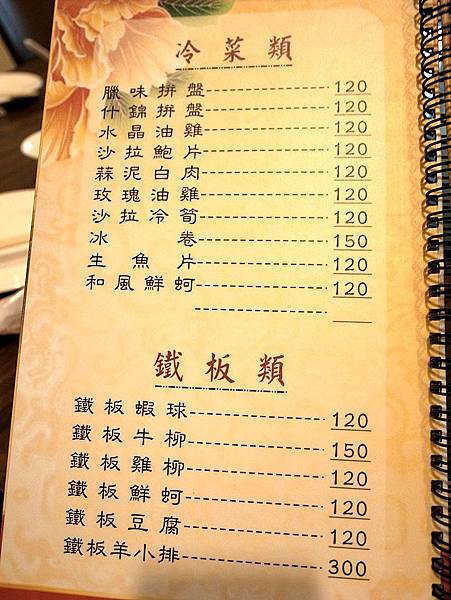 冷菜類
臘味拼盤 120
什錦拼盤 120
水晶油雞 120
沙拉鮑片 120
蒜泥白肉 120
玫瑰油雞 120
沙拉冷筍 120
冰卷 150
生魚片 120
和風鮮蚵 120
鐵板類
鐵板蝦球 120
鐵板牛柳 150
鐵板雞柳 120
鐵板鮮蚵 120
鐵板豆腐 120
鐵板羊小排 300